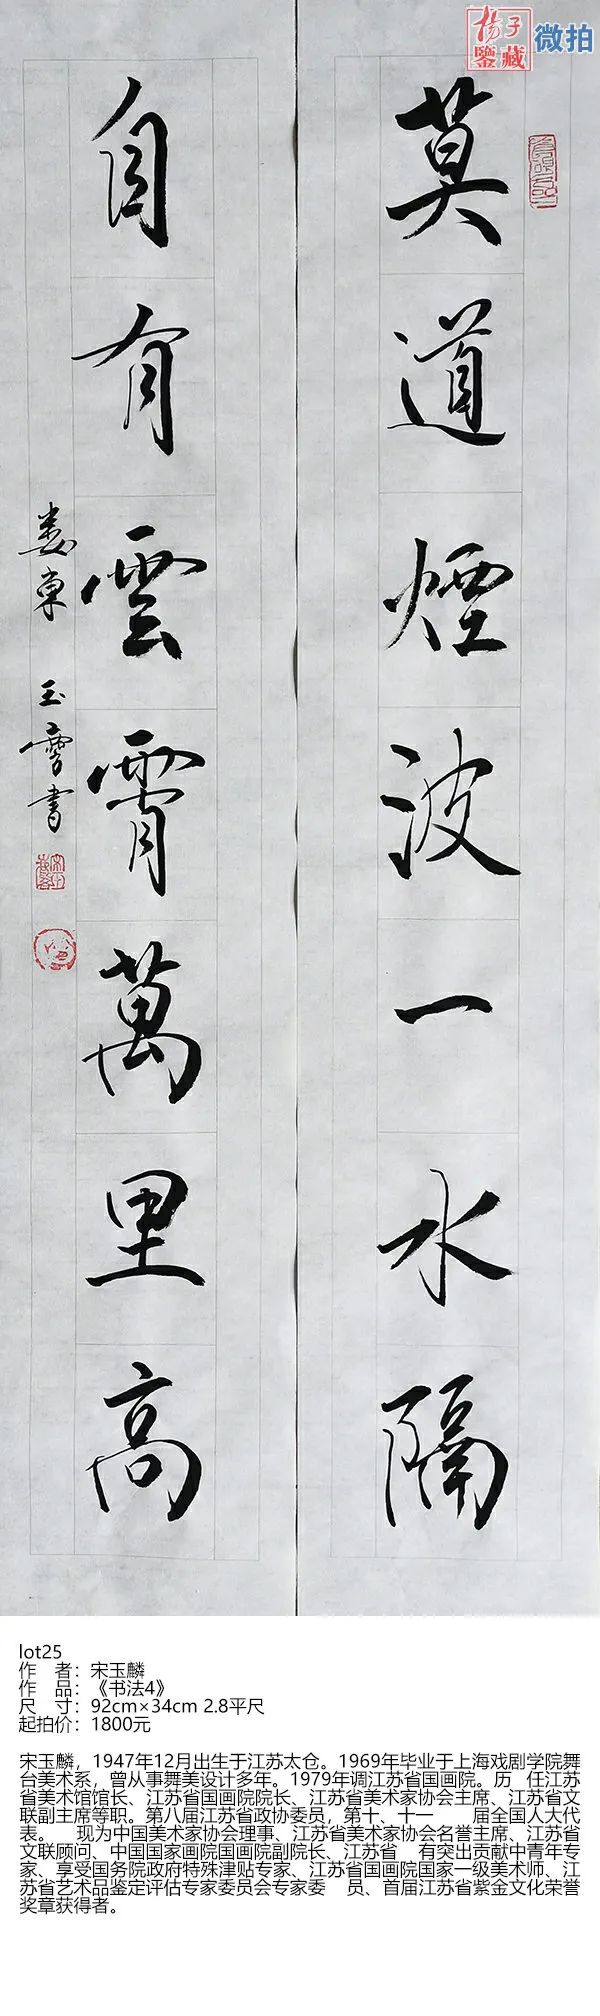 揚子
鑒藏
微拍
莫道煙波一水隔
自有雲霄萬里高
婁東 玉麐書
lot25
作 者：宋玉麟
作 品：《书法4》
尺 寸：92cm×34cm 2.8平尺
起拍价：1800元
宋玉麟，1947年12月出生于江苏太仓。1969年毕业于上海戏剧学院舞
台美术系，曾从事舞美设计多年。1979年调江苏省国画院。历 任江苏
省美术馆馆长、江苏省国画院院长、江苏省美术家协会主席、江苏省文
联副主席等职。第八届江苏省政协委员，第十、十一 届全国人大代
表。 现为中国美术家协会理事、江苏省美术家协会名誉主席、江苏省
文联顾问、中国国家画院国画院副院长、江苏省 有突出贡献中青年专
家、享受国务院政府特殊津贴专家、江苏省国画院国家一级美术师、江
苏省艺术品鉴定评估专家委员会专家委 员、首届江苏省紫金文化荣誉
奖章获得者。